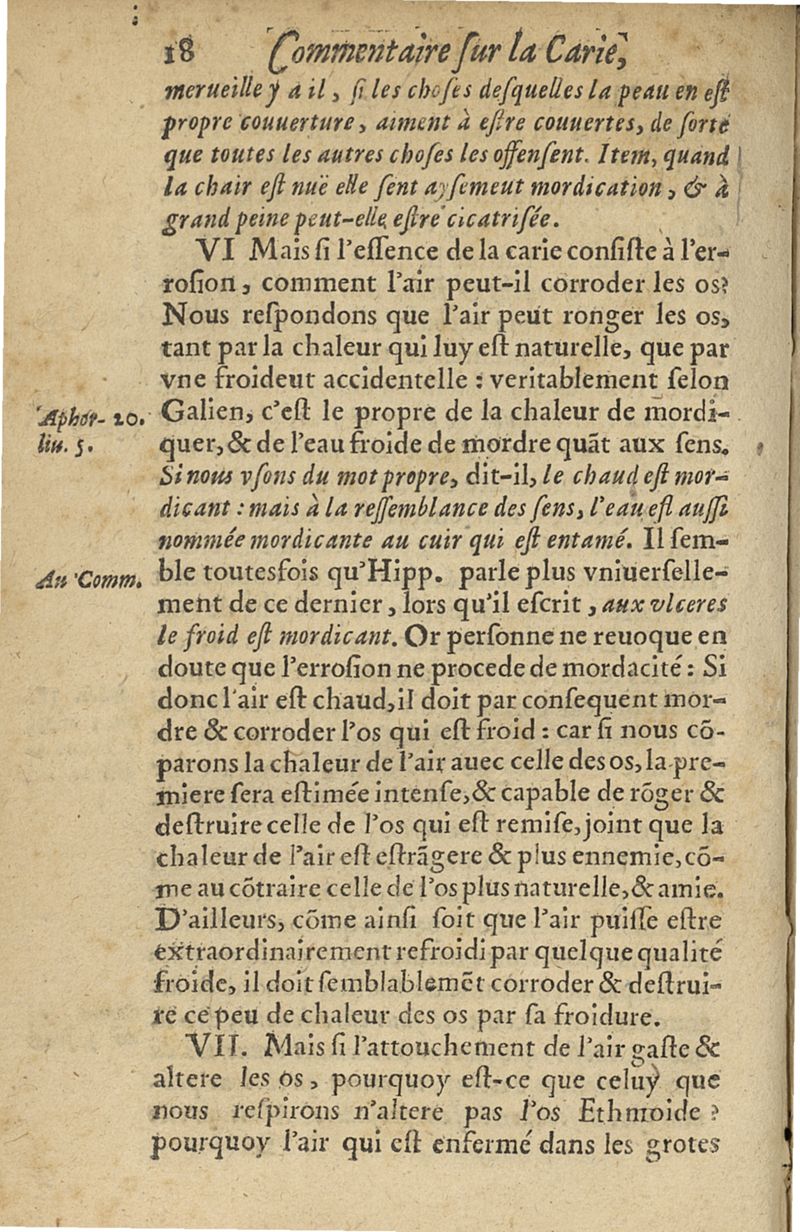 18 Commentaire ſur la Carie,
merueille y a il, ſi les choſes deſquelles la peau en eſt
propre couuerture, aiment à eſtre couuertes, de ſorte
que toutes les autres choſes les offenſent. Item, quand
la chair eſt nuë elle ſent ayſemeut mordication, & à
grand peine peut-elle eſtre cicatriſée.
VI Mais ſi l'eſſence de la carie conſiſte à l'er-
roſion, comment l'air peut-il corroder les os?
Nous reſpondons que l'air peut ronger les os,
tant par la chaleur qui luy eſt naturelle, que par
vne froideut accidentelle : veritablement ſelon
Aphor. 20. Galien, c'eſt le propre de la chaleur de mordi-
liu. 5. quer, & de l'eau froide de mordre quãt aux ſens.
Si nous vſons du mot propre, dit-il, le chaud eſt mor-
dicant : mais à la reſſemblance des ſens, l'eau eſt auſſi
nommée mordicante au cuir qui eſt entamé. Il ſem-
Au Comm. ble toutesfois qu'Hipp. parle plus vniuerſelle-
ment de ce dernier, lors qu'il eſcrit, aux vlceres
le froid eſt mordicant. Or perſonne ne reuoque en
doute que l'erroſion ne procede de mordacité : Si
donc l'air eſt chaud, il doit par conſequent mor-
dre & corroder l'os qui eſt froid : car ſi nous cõ-
parons la chaleur de l'air auec celle des os, la pre-
miere ſera eſtimée intenſe, & capable de rõger &
deſtruire celle de l'os qui eſt remiſe, joint que la
chaleur de l'air eſt eſtrãgere & plus ennemie, cõ-
me au cõtraire celle de l'os plus naturelle, & amie.
D'ailleurs, cõme ainſi ſoit que l'air puiſſe eſtre
extraordinairement refroidi par quelque qualité
froide, il doit ſemblablemẽt corroder & deſtrui-
re ce peu de chaleur des os par ſa froidure.
VII. Mais ſi l'attouchement de l'air gaſte &
altere les os, pourquoy eſt-ce que celuy que
nous reſpirons n'altere pas l'os Ethmoide ?
pourquoy l'air qui eſt enfermé dans les grotes